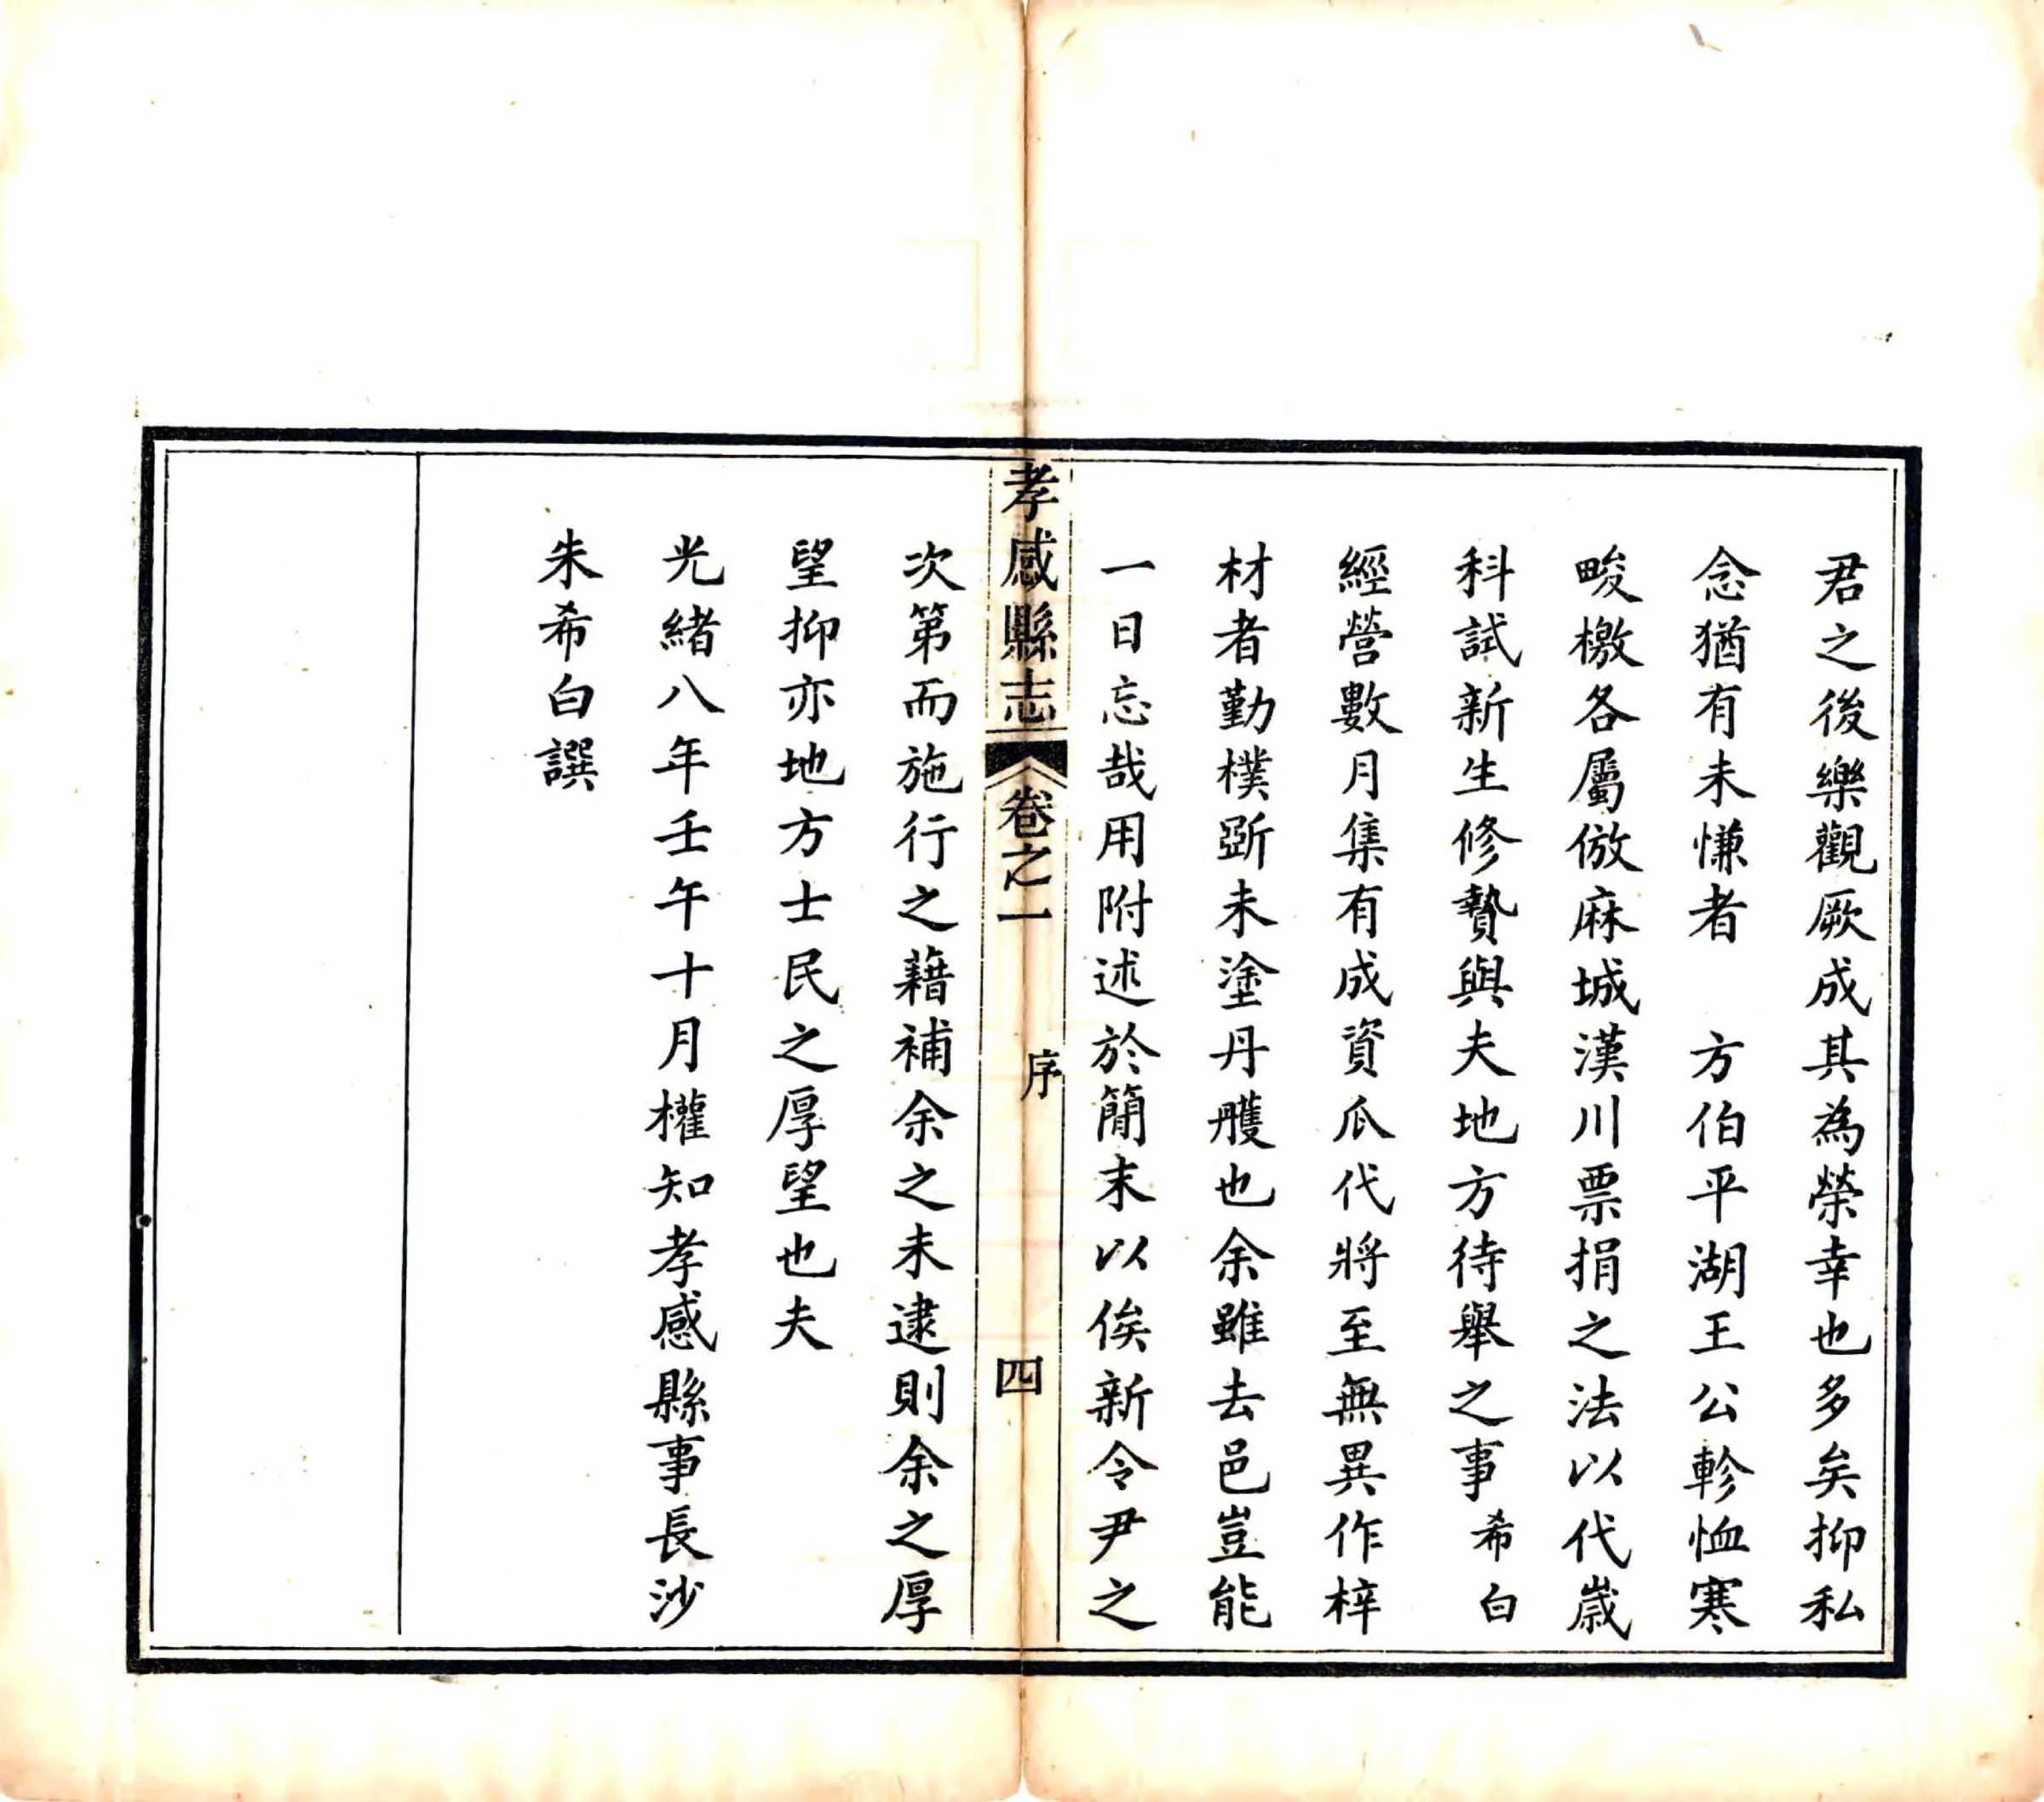 君之後樂觀厥成其為榮幸也多矣抑私
念猶有未慊者　方伯平湖王公軫恤寒
畯檄各屬倣麻城漢川票捐之法以代歲
科試新生修贄與夫地方待舉之事希白
經營數月集有成資瓜代將至無異作梓
材者勤樸斲未塗丹雘也余雖去邑豈能
一日忘哉用附述於簡末以俟新令尹之
孝感縣志
卷之一
序
四
次第而施行之藉補余之未逮則余之厚
望抑亦地方士民之厚望也夫
光緒八年壬午十月權知孝感縣事長沙
朱希白譔